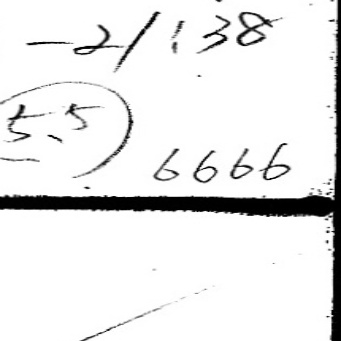 -21:38
5.5
6666